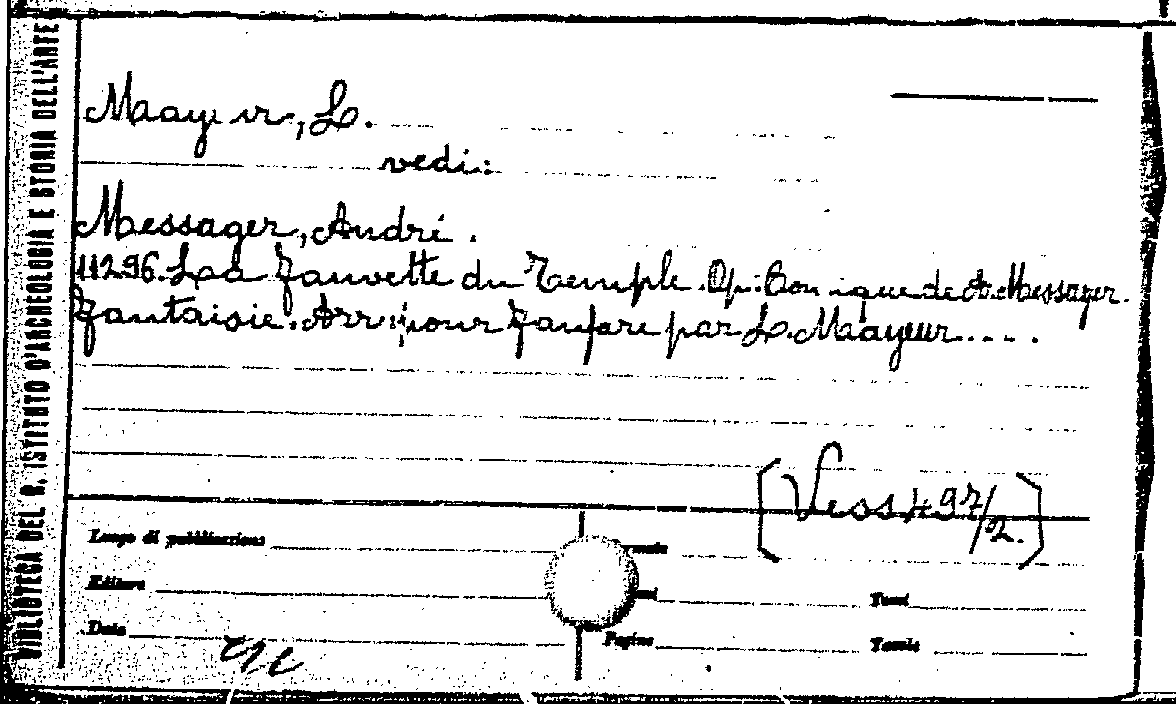 BIBLIOTECA DEL R. ISTITUTO D'ARCHEOLOGIA E STORIA DELL'ARTE
Maayeur, L.
vedi:
Messager, André.
11296. La Fauvette du Temple. Op. Comique de A. Messager.
Fantaisie. Arr. pour fanfare par L. Maayeur....
[Vess 497/2.]
Luogo di pubblicazione
Editore
Data
Pagine
Tomi
Tavole